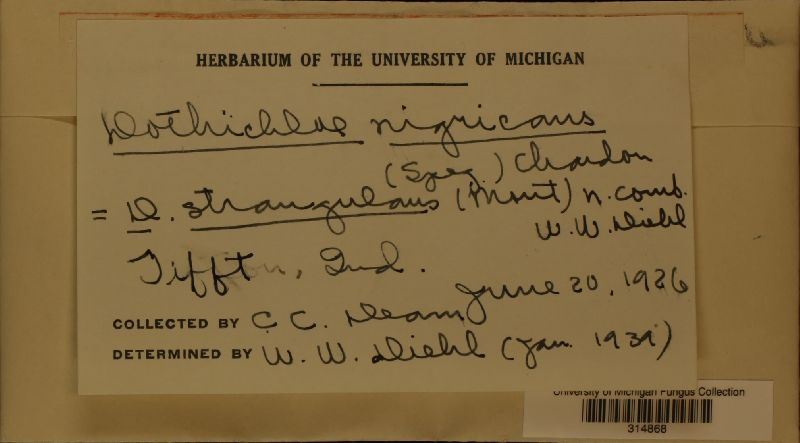 HERBARIUM OF THE UNIVERSITY OF MICHIGAN
Dothichloe nigricans
(Speg.) Chardon
= D. strangulans (Mont) n. comb.
W. W. Diehl
Ind.
June 20, 1926
COLLECTED BY C C. Deam
DETERMINED BY W. W. Diehl (Jan. 1939)
University of Michigan Fungus Collection
314868